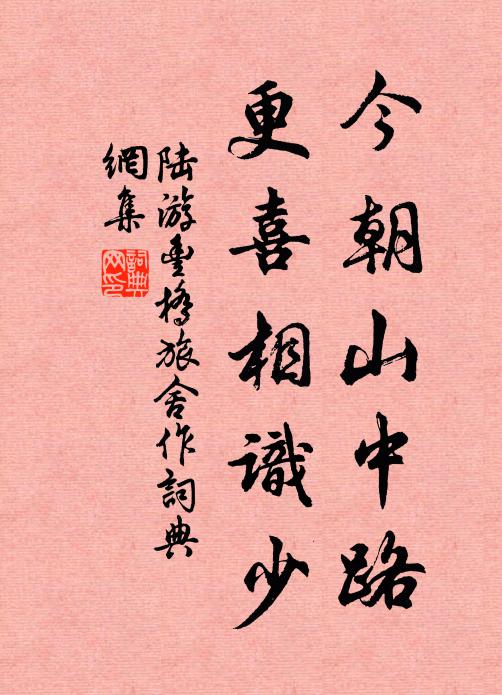 今朝山中路
更喜相識少
陆游豊橋旅舍作詞典
網集
詞典
网印